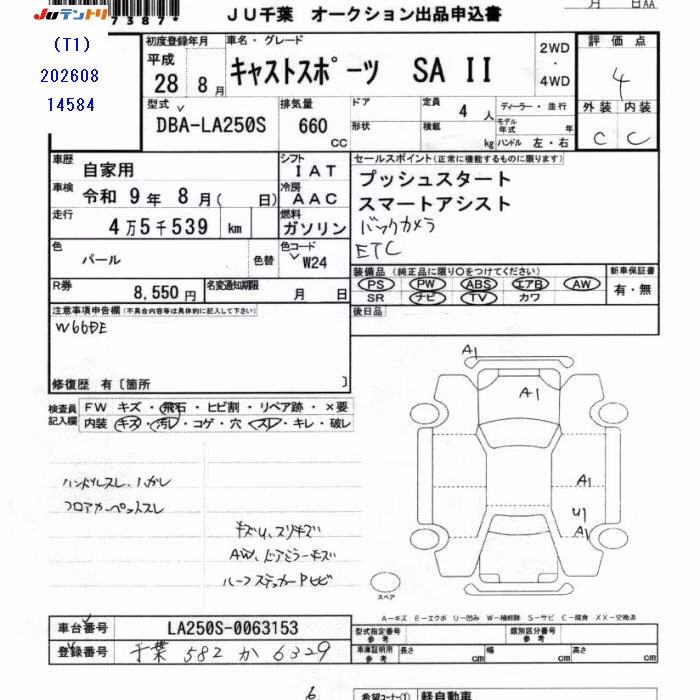 JUテントリ
7387*
月 日AA
JU千葉 オークション出品申込書
(T1)
202608
14584
初度登録年月
平成
28 8月
車名・グレード
キャストスポーツ SA II
2WD
・
4WD
評価点
4
外装 内装
C C
型式
DBA-LA250S
排気量
660
CC
ドア
形状
定員 4 人
積載 kg
ディーラー・並行
モデル年式 年
ハンドル 左・右
車歴
自家用
車検 令和 9年 8月( 日)
走行
4万5千539 km
シフト
IAT
冷房
AAC
燃料
ガソリン
セールスポイント(正常に機能するものに限ります)
プッシュスタート
スマートアシスト
バックカメラ
ETC
色
パール
色替
色コード
W24
R券
8,550円
名変通知期限
月 日
装備品 (純正品に限り○をつけてください)
PS PW ABS エアB AW
SR ナビ TV カワ
新車保証書
有・無
後日品
注意事項申告欄(不具合内容等は具体的に記入して下さい)
修復歴 有〔箇所 〕
検査員
記入欄
FW キズ・飛石・ヒビ割・リペア跡・×要
内装 キズ・汚レ・コゲ・穴・スレ・キレ・破レ
ハンドルスレ、ハガレ
フロアカーペットスレ
キズU、スリキズ
AW、ドアミラーキズ
ルーフステッカーPヒビ
A1
A1
A1
U1
A1
スペア
A-キズ E-エクボ U-凹み W-補修跡 S-サビ C-腐食 XX-交換済
車台番号
LA250S-0063153
登録番号
千葉 582 か 6329
型式指定番号
参考
類別区分番号
参考
車庫証明用
参考
長さ cm
幅 cm
高さ cm
6
希望コーナー① 軽自動車